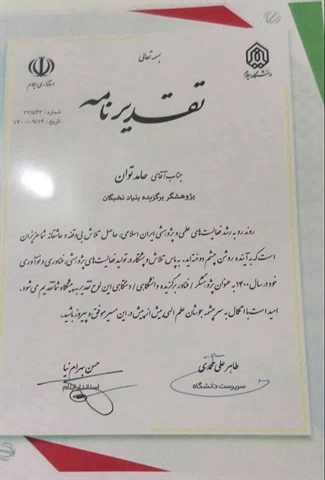 بسمه تعالی
دانشگاه ایلام
استانداری ایلام
شماره: ۲۲/۵۴۲
تاریخ: ۱۴۰۰/۰۹/۱۴
تقدیرنامه
جناب آقای حامد توان
پژوهشگر برگزیده بنیاد نخبگان
روند رو به رشد فعالیت‌های علمی و پژوهشی ایران اسلامی، حاصل تلاش بی‌وقفه و عاشقانه شما عزیزان
است که به آینده روشن چشم دوخته‌اید. به پاس تلاش و پشتکار در تولید فعالیت‌های پژوهشی، فناوری و نوآوری
خود در سال ۱۴۰۰ به عنوان پژوهشگر/ فناور برگزیده دانشگاهی/ دستگاهی این لوح تقدیر به پیشگاه شما تقدیم می‌شود.
امید است با اتکال به سرچشمه جوشان علم الهی بیش از پیش در این مسیر موفق و پیروز باشید.
طاهر علی‌محمدی
سرپرست دانشگاه
حسن بهرام نیا
استاندار ایلام